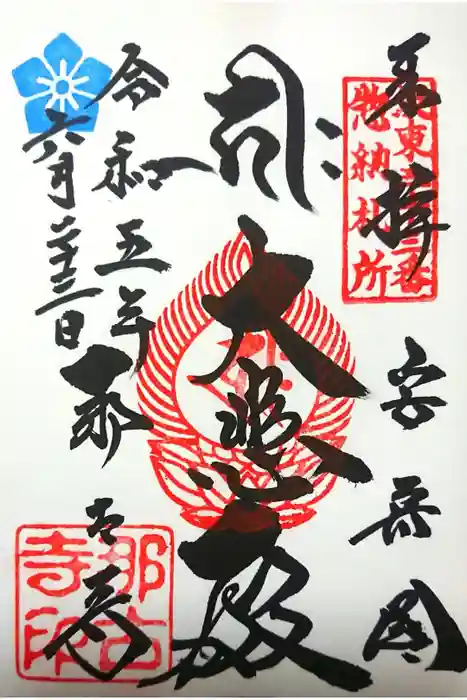 奉拝
安房国
坂東三十三番
惣納札所
大悲殿
令和五年
六月二十三日
那古寺
那古
寺印